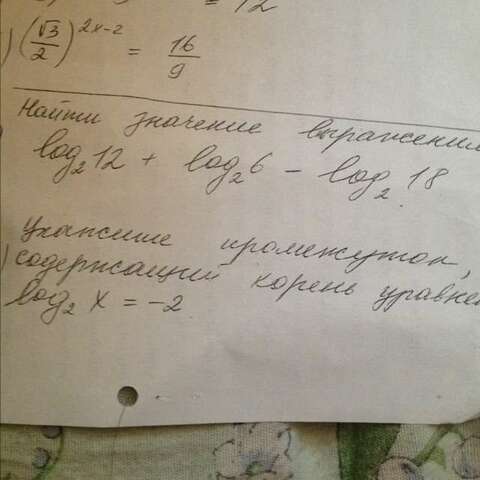 = 12
) (√3/2)^2x-2 = 16/9
Найти значение выражения
log₂12 + log₂6 - log₂18
Укажите промежуток,
) содержащий корень уравне
log₂ x = -2